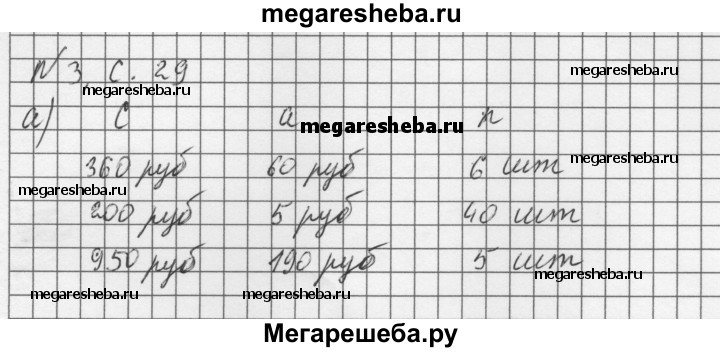 megaresheba.ru
N 3, с. 29
megaresheba.ru
megaresheba.ru
а) С а n
megaresheba.ru
360 руб 60 руб 6 шт
megaresheba.ru
megaresheba.ru
200 руб 5 руб 40 шт
950 руб 190 руб 5 шт
megaresheba.ru
megaresheba.ru megaresheba.ru
Мегарешеба.ру